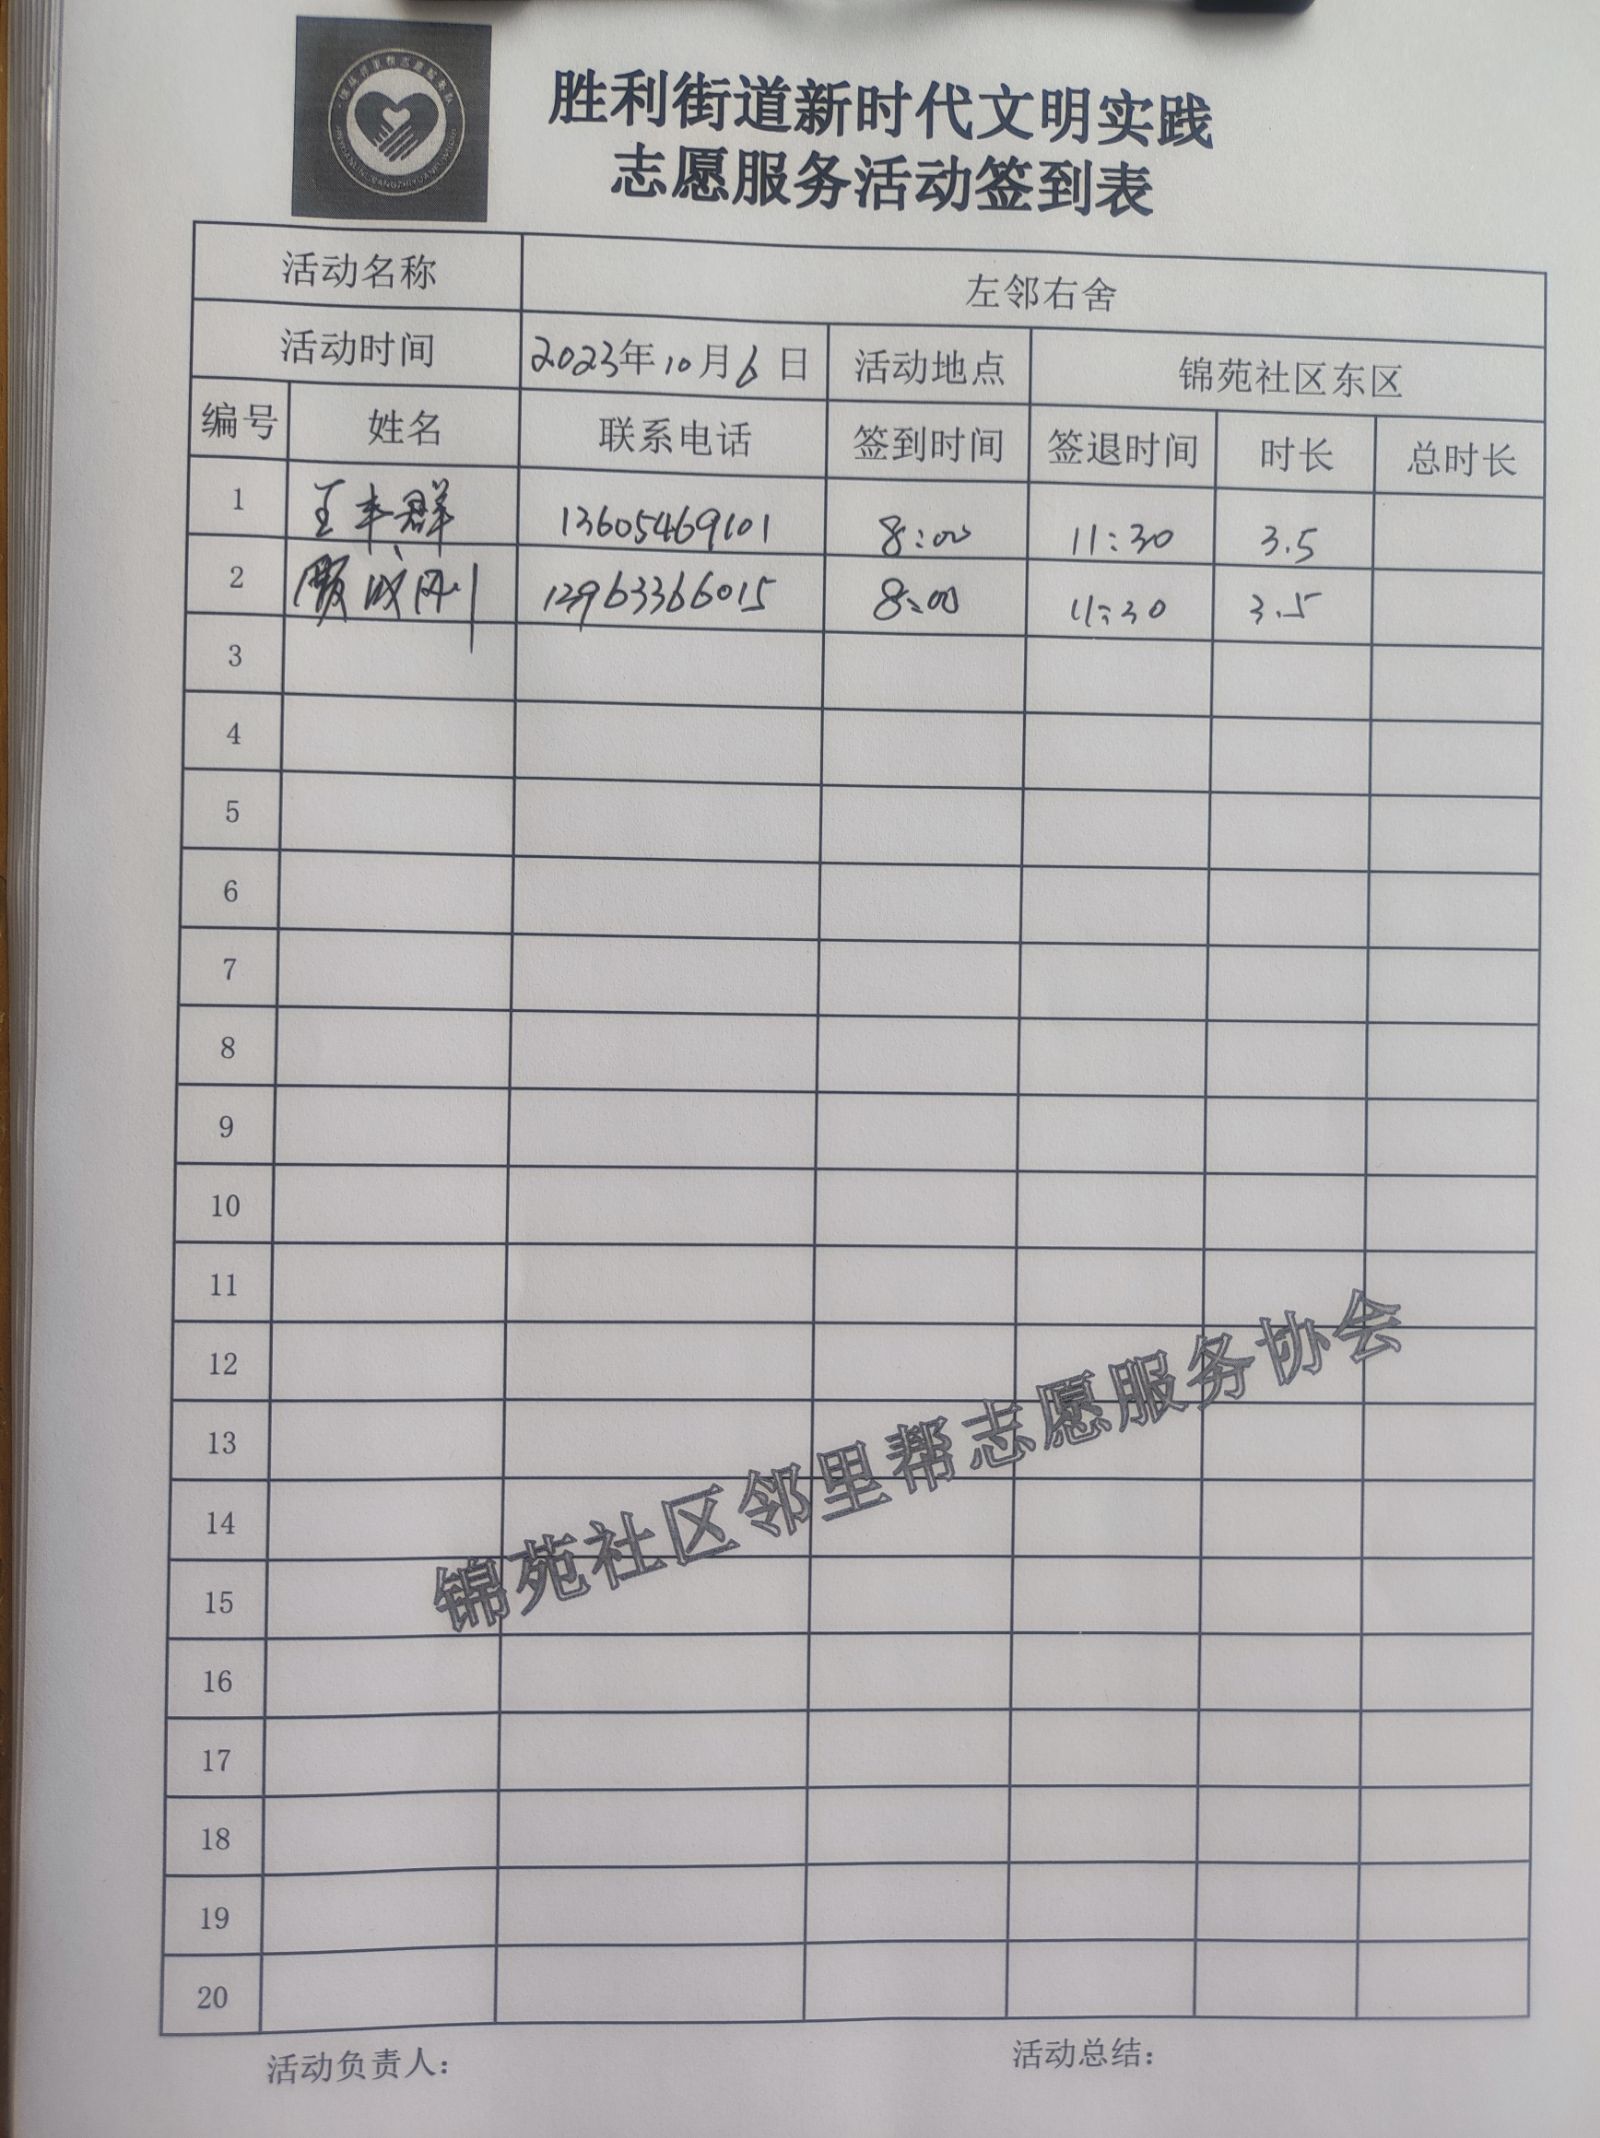 胜利街道新时代文明实践
志愿服务活动签到表
活动名称 左邻右舍
活动时间 2023年10月6日 活动地点 锦苑社区东区
编号 姓名 联系电话 签到时间 签退时间 时长 总时长
1 王丰群 13605469101 8:00 11:30 3.5
2 8:00 11:30 3.5
3
4
5
6
7
8
9
10
11
12
13
14
15
16
17
18
19
20
锦苑社区邻里帮志愿服务协会
活动负责人： 活动总结：